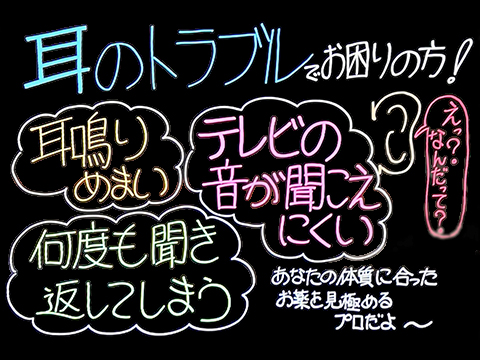 耳のトラブルでお困りの方!
耳鳴り
めまい
テレビの
音が聞こえ
にくい
えっ?
なんだって?
何度も聞き
返してしまう
あなたの体質に合った
お薬を見極める
プロだよ〜